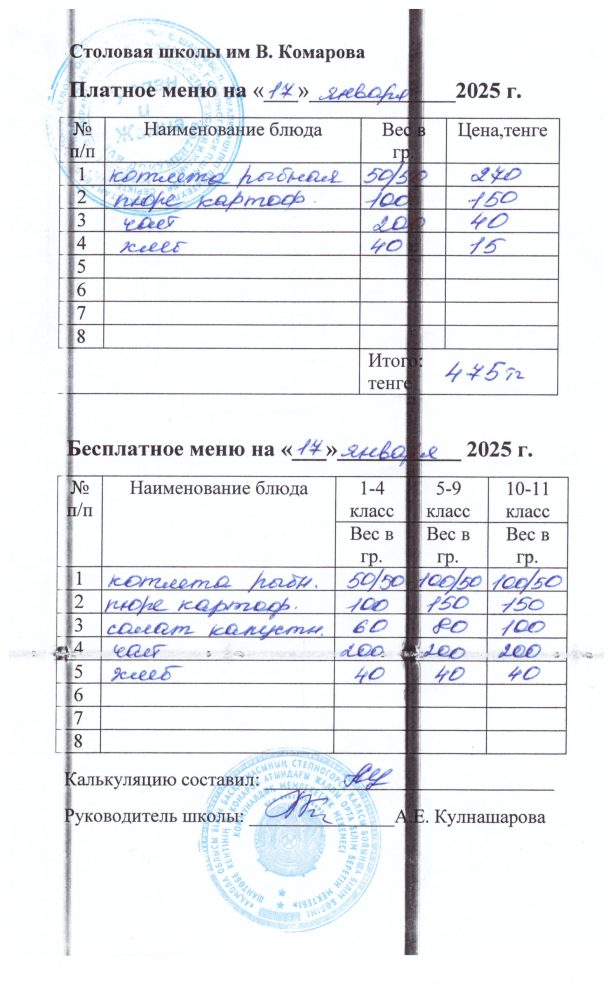 Столовая школы им В. Комарова
Платное меню на «17» января 2025 г.
№ п/п Наименование блюда Вес в гр. Цена,тенге
1 котлета рыбная 50/50 270
2 пюре картоф. 100 150
3 чай 200 40
4 хлеб 40 15
5
6
7
8
Итого: тенге 475 тг
Бесплатное меню на «17» января 2025 г.
№ п/п Наименование блюда 1-4 класс 5-9 класс 10-11 класс
Вес в гр. Вес в гр. Вес в гр.
1 котлета рыбн. 50/50 100/50 100/50
2 пюре картоф. 100 150 150
3 салат капустн. 60 80 100
4 чай 200 200 200
5 хлеб 40 40 40
6
7
8
Калькуляцию составил:
Руководитель школы: А.Е. Кулнашарова